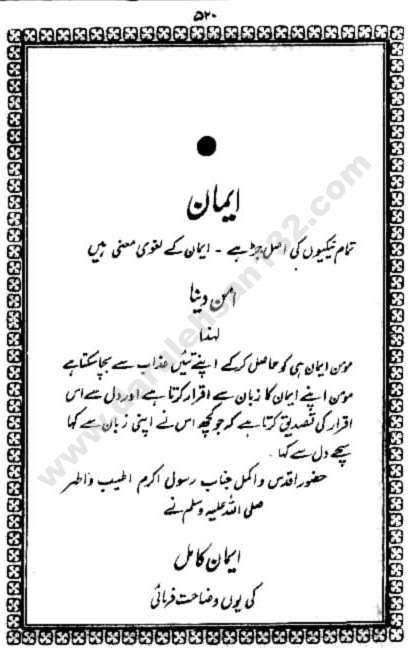 ۵۲۰
ایمان
تمام نیکیوں کی اصل جڑ ہے - ایمان کے لغوی معنی ہیں
امن دینا
لہٰذا
مومن ایمان ہی کو حاصل کر کے اپنے تئیں عذاب سے بچا سکتا ہے
مومن اپنے ایمان کا زبان سے اقرار کرتا ہے اور دل سے اس
اقرار کی تصدیق کرتا ہے کہ جو کچھ اس نے اپنی زبان سے کہا
سچے دل سے کہا -
حضور اقدس و اکمل جناب رسول اکرم اطیب و اطہر
صلی اللہ علیہ وسلم نے
ایمان کامل
کی یوں وضاحت فرمائی
www.darulehsan122.com